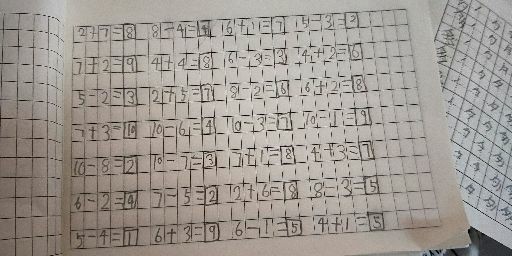 2+7=8 8-4=4 6+1=7 5-3=2
7+2=9 4+4=8 6-3=3 4+2=6
5-2=3 2+5=7 8-2=6 6+2=8
7+3=10 10-6=4 10-3=7 10-1=9
10-8=2 10-7=3 7+1=8 4+3=7
6-2=4 7-5=2 2+6=8 8-3=5
5-4=1 6+3=9 6-1=5 4+1=5